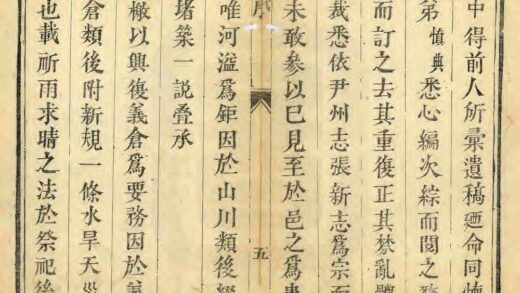 中得前人所彙遺稿廼命同
弟慎典悉心編次綜而閱之務
而訂之去其重復正其棼亂體
裁悉依尹州志張新志爲宗至
未敢參以巳見至於邑之爲患
五
唯河溢爲鉅因於山川類後
堵築一説叠承
檄以興復義倉爲要務因於
倉類後附新規一條水旱天災
也載祈雨求晴之法於祭祀後